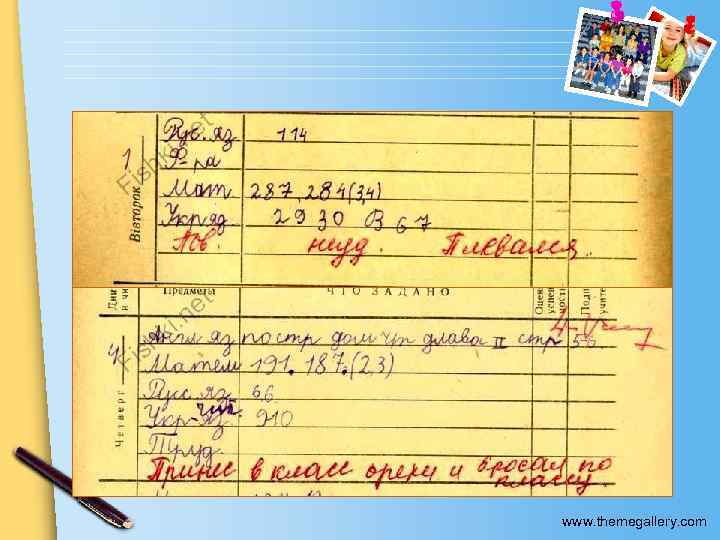 Вівторок
1
Рус. яз 114
Р-ра
Мат 287, 284(3,4)
Укр яз 29 30 В 67
Пов. неуд. Плевался.
Fishki.net
Дни и чи
Предметы
ЧТО ЗАДАНО
Оцен успев ности
Подп учите
Четверг
4
Англ яз по стр дом чт глава II стр 56
4
Матем 191. 187.(2,3)
Русс яз 66
Укр-яз чит. 910
Труд
Принес в класс орехи и бросал по классу.
Fishki.net
www.themegallery.com